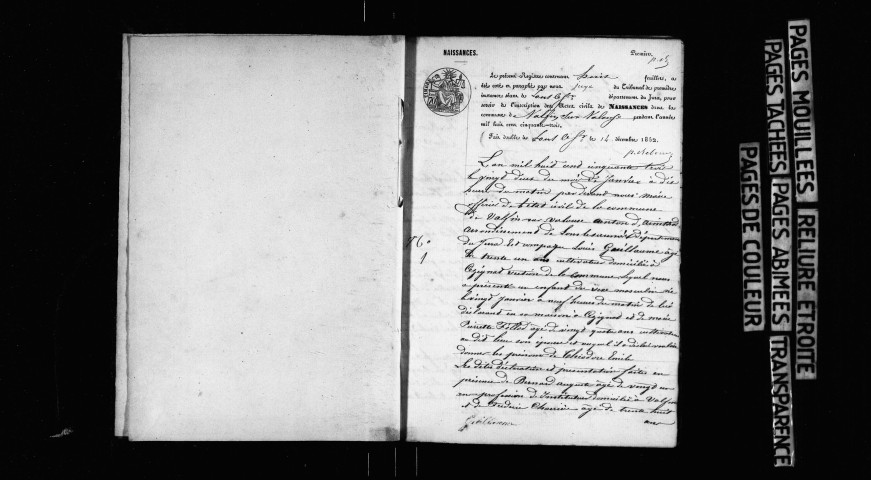 NAISSANCES.
Premier.
Le présent Registre contenant huit feuillets, a
été coté et paraphé par nous juge du Tribunal de première
instance séant de Lons le St département du Jura, pour
servir à l'inscription des Actes civils de NAISSANCES dans la
commune de Valfin sur Valouse pendant l'année
mil huit cent cinquante-trois.
Fait double à Lons le St le 14 décembre 1852.
L'an mil huit cent cinquante trois
le vingt deux du mois de Janvier à dix
heures du matin par devant nous maire
officier de l'état civil de la commune
de Valfin sur Valouse canton d'Arinthod
arrondissement de Lons le saunier Département
du Jura Est comparu Louis Guillaume âgé
de trente un ans cultivateur domicilié à
section de la commune lequel nous
a présenté un enfant du sexe masculin né
le vingt Janvier à neuf heures du matin de lui
déclarant en sa maison à et de marie
Pierrette âgé de vingt quatre ans cultivatrice
au dit lieu son épouse et auquel il a déclaré vouloir
donner les prénoms de Théodore Emile
Les dites déclaration et présentation faites en
présence de Bernard auguste âgé de vingt un
ans profession d'Instituteur domicilié à Valfin
et de âgé de trente huit
ans
Guillaume
N° 1
PAGES MOUILLEES RELIURE ETROITE
PAGES TACHEES PAGES ABIMEES TRANSPARENCE
PAGES DE COULEUR